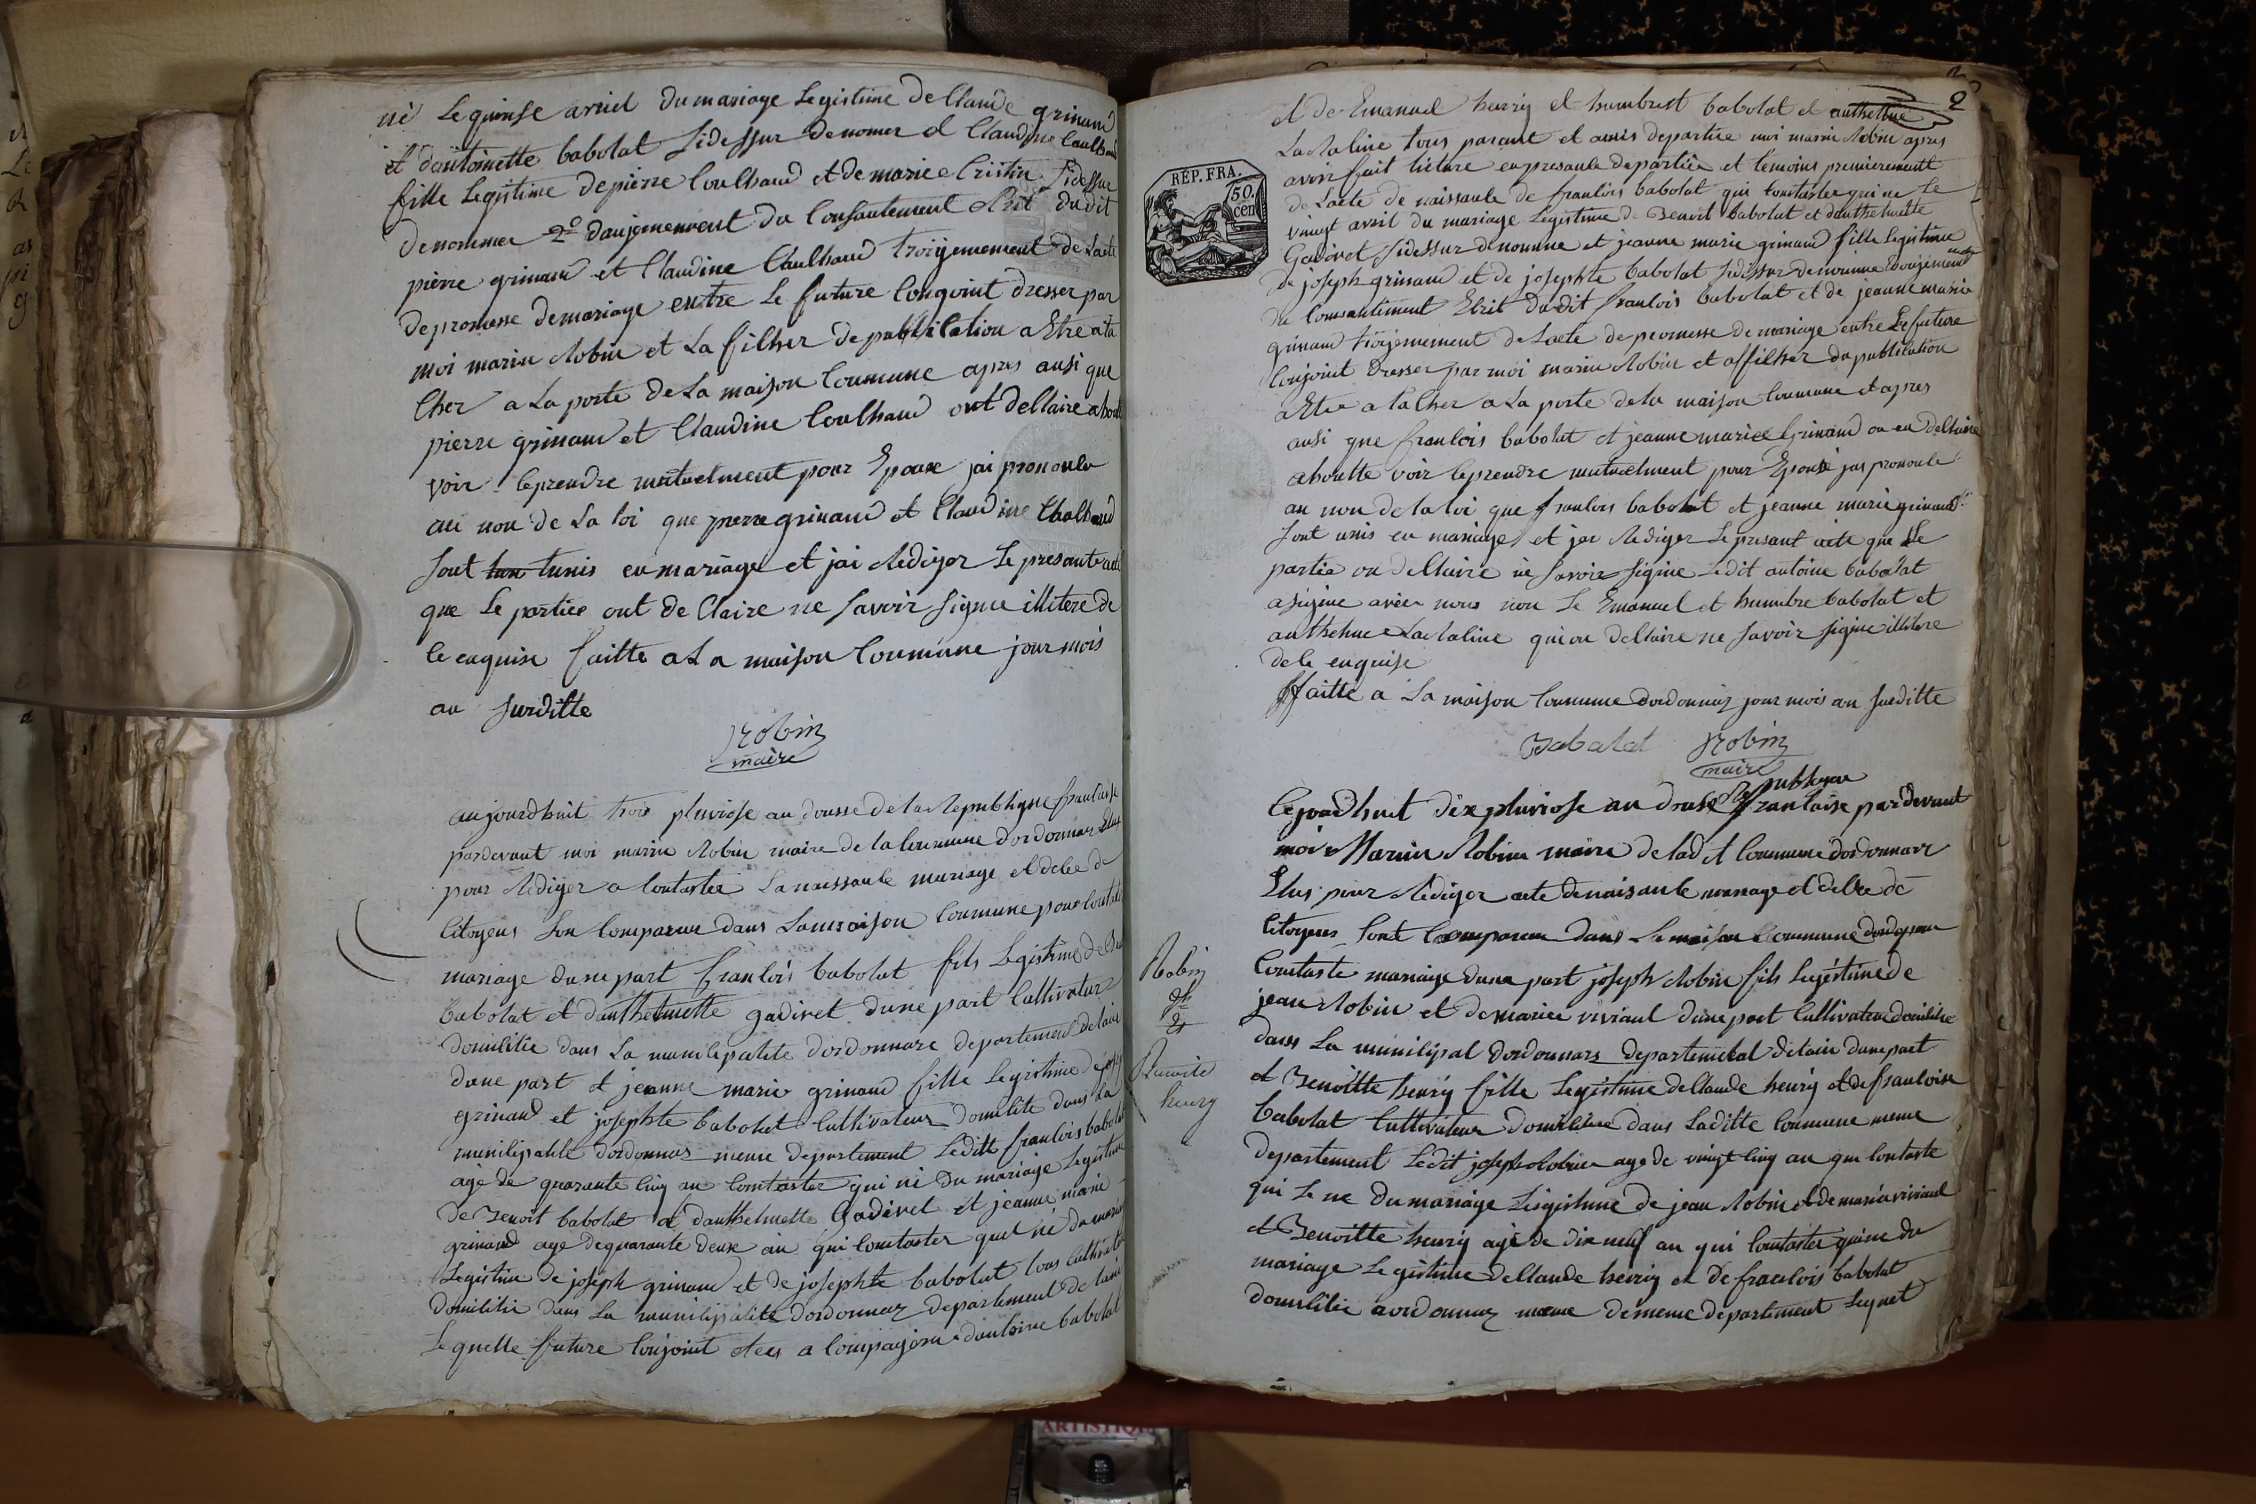 né le quinse avriel du mariage Legistime de Claude grinand
et dantoinette babolat sidessur denomer et Claudine Caulhaud
fille Legitime depierre Coulhaud et de mariee Cristin sidessur
denommer 2e daujemement du Consantement Ecrit du dit
pierre grinand et Claudine Caulhaud troijemement de Lacte
depromesse demariage entre Le future Congoint dresser par
moi marin Robin et La ficher de publication a Etre ata
Cher a La porte de La maison Commune apres ausi que
pierre grinand et Claudine Coulhaud ont declaire a haute
voir ceprendre mutuelment pour Epoux jai prononce
au non de La loi que pierre grinand et Claudine Caulhaud
sont tunis en mariage et jai Rediger Le presant acte
que Le partiee ont de Claire ne savoir signee illitere de
ce enquise faitte a La maison Commune jour mois
an surditte
Robin
maire
aujourdhuit trois pluviose an dousse de la Republique francaise
pardevant moi marin Robin maire de la Commune dordonnaz Elus
pour Rediger a Contastee La naissance mariage et decee de
Citoyens son Comparue dans La maison Commune pour Contraster
mariage dune part francois babolat fils Legistime de Be
babolat et danthelmette gadinet dune part Cultivateur
domilitie dans La municipalite dordonnare departement delain
dune part et jeanne marie grinand fille Legistime de josep
grinand et josephte babolat Cultivateur domilite dans La
municipalite dordonnaz meme departement Ledit francois babolat
age de quarante cinq an Contaster qui né du mariage Legistime
de Benoit babolat et danthelmette Gadinet et jeanne marie
grinand age dequarante deux an qui Contaster quel né du mariage
Legistime de joseph grinand et de josephte babolat tous Cultivateur
domilitie dans La municipalite dordonnaz departement de Lain
Le quelle future Conjoint etees a Compagne dantoine babolat
2
et de Emanuel henriy et humbert babolat et anthelme
La Raline tous parant et amis departie moi marin Robin apres
avoir fait licture enpresance departiee et temoins premierement
de Lacte de naissance de francois babolat qui Contaste quine Le
vinngt avril du mariage Legistime de Benoit babolat et danthelmette
Gadinet sidessur denomme et jeanne marie grinand fille Legitime
de joseph grinand et de josephte babolat sidessur denomme doujemement
du Consantiment Ecrit du dit francois babolat et de jeanne marie
grinand troijemement de Lacte de promesse de mariage entre Le future
Conjoint dresser par moi marin Robin et afficher du publication
a Etre a tacher a La porte dela maison Commune et apres
ausi que francois babolat et jeanne mariee Grinand on en declaire
a houtte voir ceprendre mutuelment pour Epouse jai prononce
au non de la loi que francois babolat et jeanne marie grinand
sont unis en mariage et jai Rediger Le presant acte que Le
partie on declaire ne savoir signe Ledit antoine babolat
a signe avec nous non Le Emanuel et humbre babolat et
anthelme La Raline qui on declaire ne savoir signe illitere
dece enquise
ffaitte a La maison Commune dordonnaz jour mois an surditte
Babalat Robin
maire
REP. FRA.
50.
cen
Cejourdhuit dix pluviose an douse Republique francaise pardevant
moi Marin Robin maire de ladit Commune dordonnare
Elus pour Rediger acte denaisance mariage et decee de
Citoyens sont Comparue dans La maison Commune
Contaste mariage dune part joseph Robin fils Legistime de
jean Robin et demariee viviant dune part Cultivateur
dans La municipal dordonnare departement delain dune part
et Benoitte henriy fille Legistime de Claude henriy et de francoise
babolat Cultivateur domilitee dans Laditte Commune meme
departement Ledit joseph Robin age de vingt Cinq an qui Contaste
qui Le ne du mariage Legistime de jean Robin et de maria viviant
et Benoitte henriy age de dix neuf an qui Contaster quine du
mariage Legistime de Claude henriy et de francois babolat
domilitie aordonnaz meme departement Lequel
Robin
jh
Et
Benoite
henry